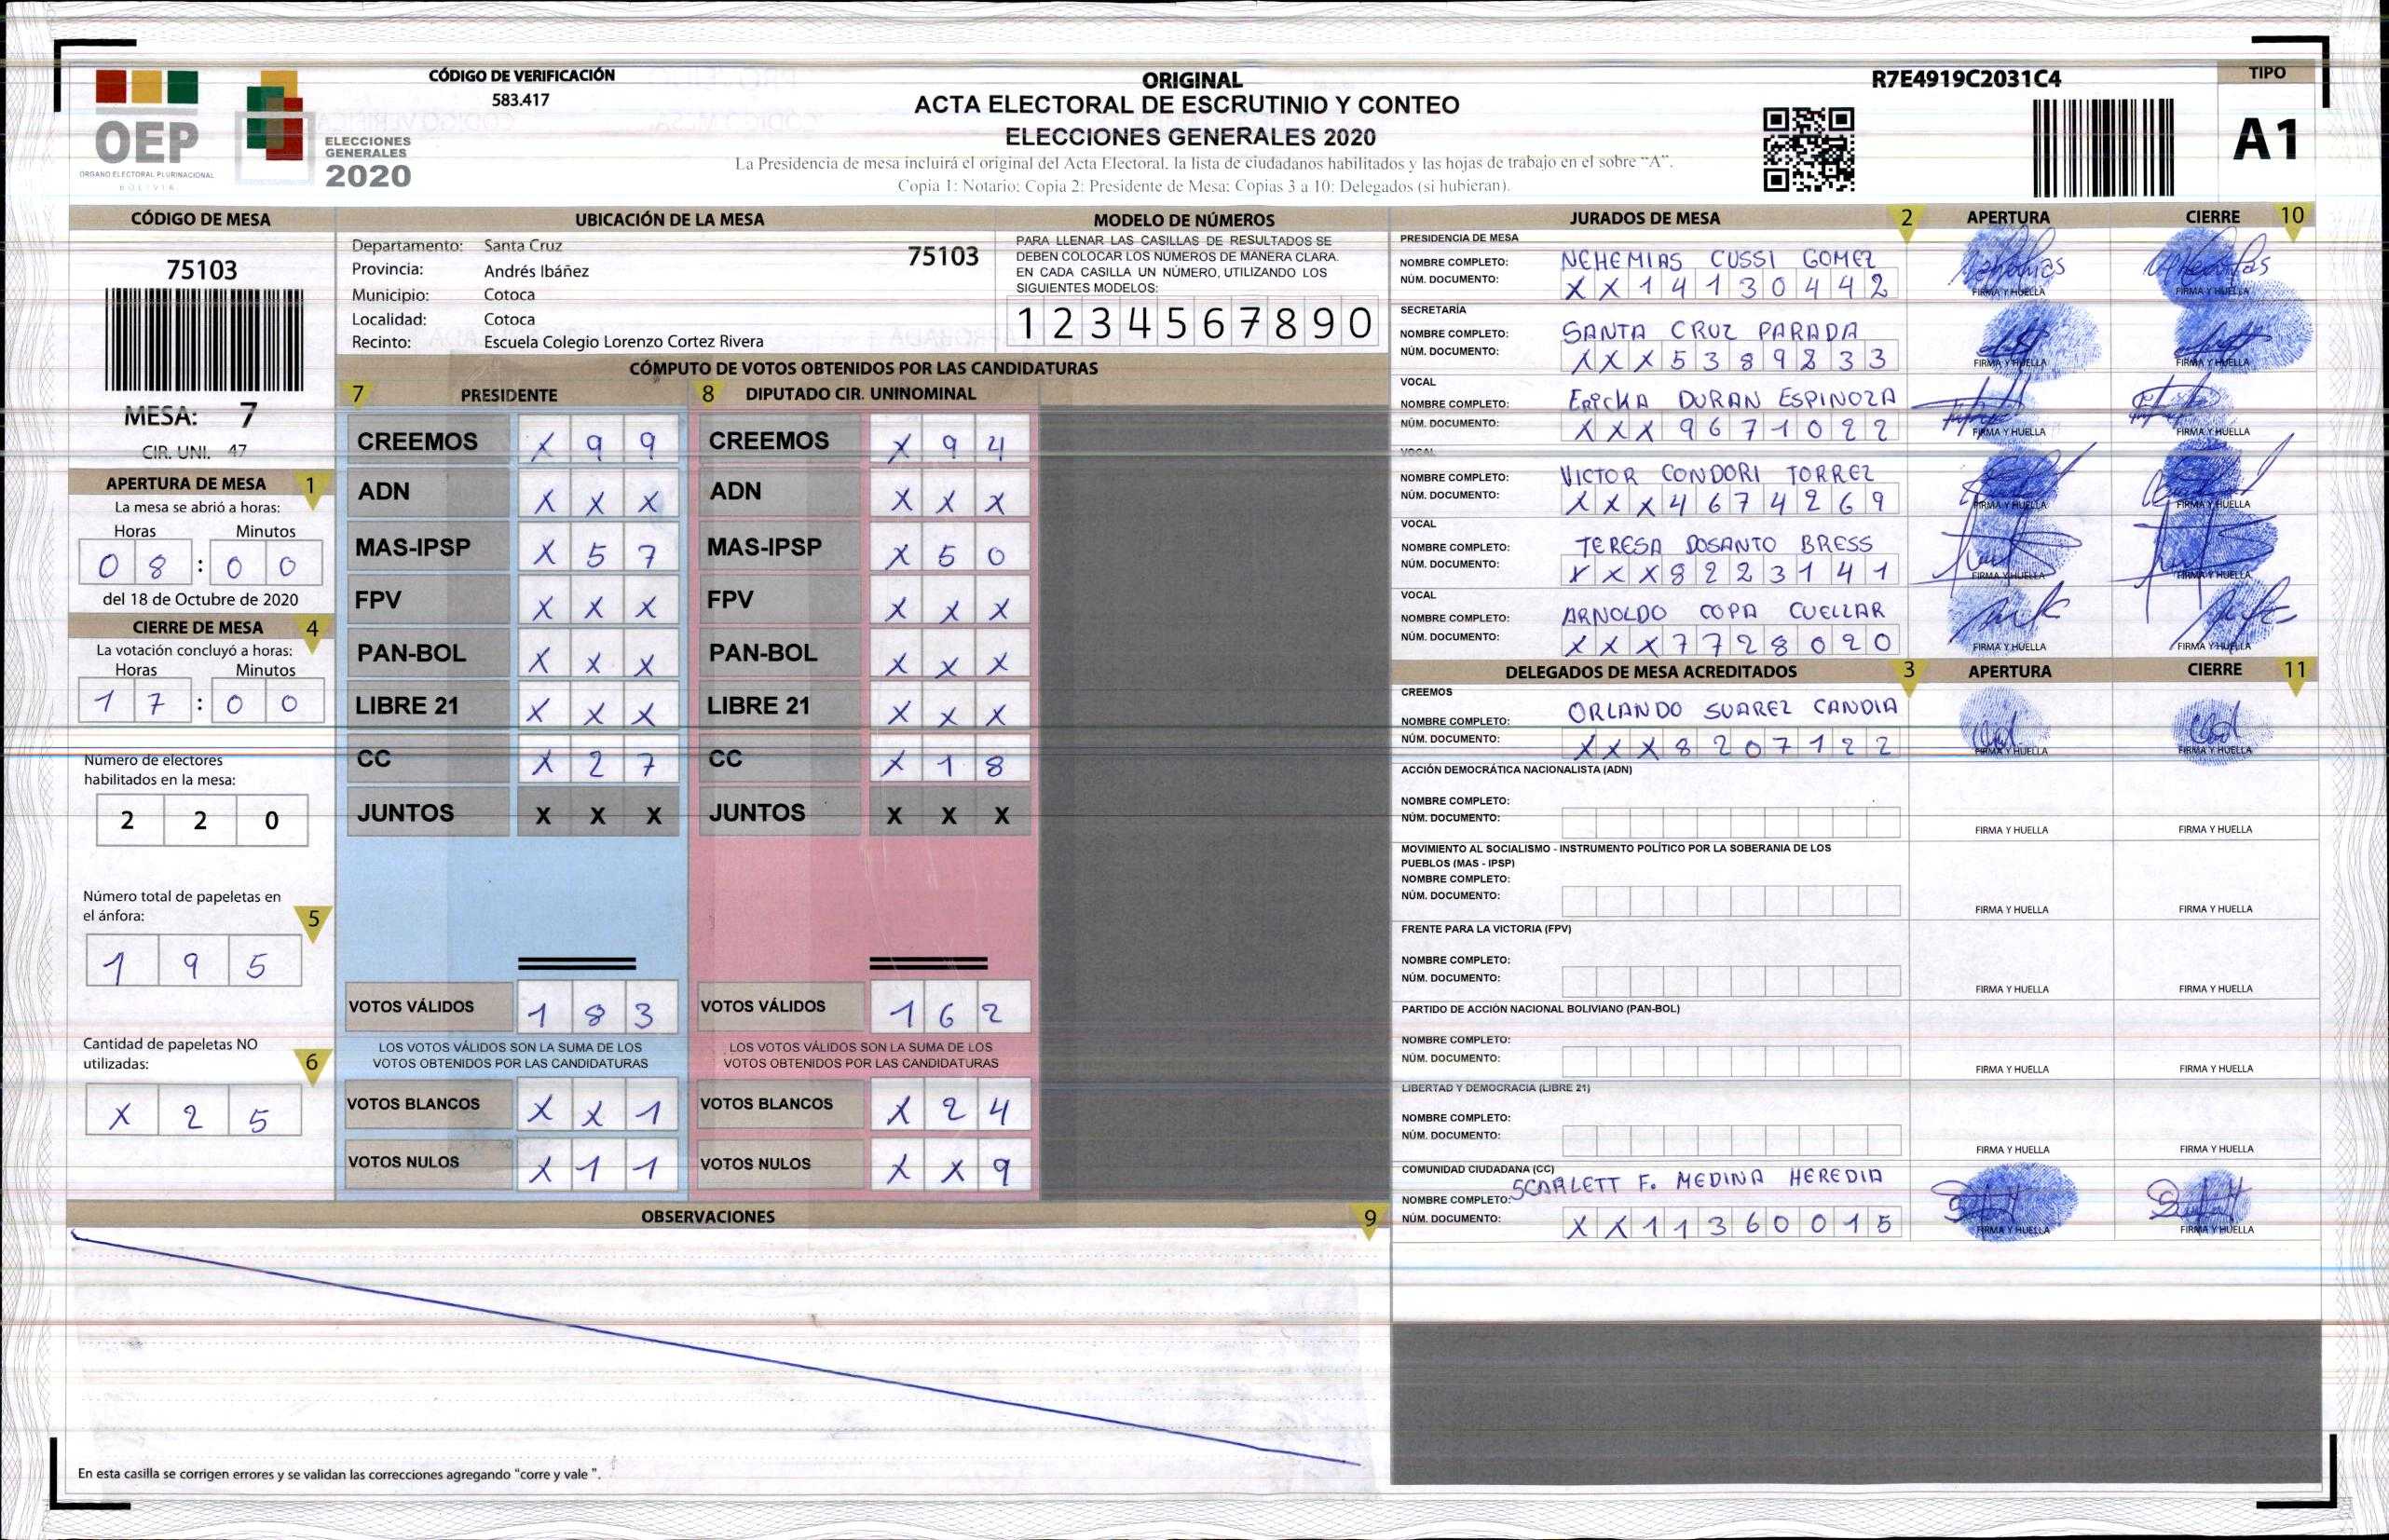 OEP
ÓRGANO ELECTORAL PLURINACIONAL
BOLIVIA
ELECCIONES
GENERALES
2020
CÓDIGO DE VERIFICACIÓN
583.417
ORIGINAL
ACTA ELECTORAL DE ESCRUTINIO Y CONTEO
ELECCIONES GENERALES 2020
La Presidencia de mesa incluirá el original del Acta Electoral, la lista de ciudadanos habilitados y las hojas de trabajo en el sobre "A".
Copia 1: Notario; Copia 2: Presidente de Mesa; Copias 3 a 10: Delegados (si hubieran).
R7E4919C2031C4
TIPO
A1
CÓDIGO DE MESA
75103
MESA: 7
CIR. UNI. 47
APERTURA DE MESA 1
La mesa se abrió a horas:
Horas Minutos
0 8 : 0 0
del 18 de Octubre de 2020
CIERRE DE MESA 4
La votación concluyó a horas:
Horas Minutos
1 7 : 0 0
Número de electores
habilitados en la mesa:
2 2 0
Número total de papeletas en
el ánfora:
5
1 9 5
Cantidad de papeletas NO
utilizadas:
6
X 2 5
UBICACIÓN DE LA MESA
Departamento: Santa Cruz 75103
Provincia: Andrés Ibáñez
Municipio: Cotoca
Localidad: Cotoca
Recinto: Escuela Colegio Lorenzo Cortez Rivera
MODELO DE NÚMEROS
PARA LLENAR LAS CASILLAS DE RESULTADOS SE
DEBEN COLOCAR LOS NÚMEROS DE MANERA CLARA.
EN CADA CASILLA UN NÚMERO, UTILIZANDO LOS
SIGUIENTES MODELOS:
1 2 3 4 5 6 7 8 9 0
CÓMPUTO DE VOTOS OBTENIDOS POR LAS CANDIDATURAS
7 PRESIDENTE 8 DIPUTADO CIR. UNINOMINAL
CREEMOS X 9 9 CREEMOS X 9 4
ADN X X X ADN X X X
MAS-IPSP X 5 7 MAS-IPSP X 5 0
FPV X X X FPV X X X
PAN-BOL X X X PAN-BOL X X X
LIBRE 21 X X X LIBRE 21 X X X
CC X 2 7 CC X 1 8
JUNTOS X X X JUNTOS X X X
VOTOS VÁLIDOS 1 8 3 VOTOS VÁLIDOS 1 6 2
LOS VOTOS VÁLIDOS SON LA SUMA DE LOS LOS VOTOS VÁLIDOS SON LA SUMA DE LOS
VOTOS OBTENIDOS POR LAS CANDIDATURAS VOTOS OBTENIDOS POR LAS CANDIDATURAS
VOTOS BLANCOS X X 1 VOTOS BLANCOS X 2 4
VOTOS NULOS X 1 1 VOTOS NULOS X X 9
OBSERVACIONES 9
En esta casilla se corrigen errores y se validan las correcciones agregando "corre y vale ".
JURADOS DE MESA 2 APERTURA CIERRE 10
PRESIDENCIA DE MESA
NOMBRE COMPLETO: NEHEMIAS CUSSI GOMEZ
NÚM. DOCUMENTO: X X 1 4 1 3 0 4 4 2 FIRMA Y HUELLA FIRMA Y HUELLA
SECRETARÍA
NOMBRE COMPLETO: SANTA CRUZ PARADA
NÚM. DOCUMENTO: X X X 5 3 8 9 8 3 3 FIRMA Y HUELLA FIRMA Y HUELLA
VOCAL
NOMBRE COMPLETO: ERICKA DURAN ESPINOZA
NÚM. DOCUMENTO: X X X 9 6 7 1 0 2 2 FIRMA Y HUELLA FIRMA Y HUELLA
VOCAL
NOMBRE COMPLETO: VICTOR CONDORI TORREZ
NÚM. DOCUMENTO: X X X 4 6 7 4 2 6 9 FIRMA Y HUELLA FIRMA Y HUELLA
VOCAL
NOMBRE COMPLETO: TERESA DOSANTO BRESS
NÚM. DOCUMENTO: X X X 8 2 2 3 1 4 1 FIRMA Y HUELLA FIRMA Y HUELLA
VOCAL
NOMBRE COMPLETO: ARNOLDO COPA CUELLAR
NÚM. DOCUMENTO: X X X 7 7 2 8 0 2 0 FIRMA Y HUELLA FIRMA Y HUELLA
DELEGADOS DE MESA ACREDITADOS 3 APERTURA CIERRE 11
CREEMOS
NOMBRE COMPLETO: ORLANDO SUAREZ CANDIA
NÚM. DOCUMENTO: X X X 8 2 0 7 1 2 2 FIRMA Y HUELLA FIRMA Y HUELLA
ACCIÓN DEMOCRÁTICA NACIONALISTA (ADN)
NOMBRE COMPLETO:
NÚM. DOCUMENTO: FIRMA Y HUELLA FIRMA Y HUELLA
MOVIMIENTO AL SOCIALISMO - INSTRUMENTO POLÍTICO POR LA SOBERANIA DE LOS
PUEBLOS (MAS - IPSP)
NOMBRE COMPLETO:
NÚM. DOCUMENTO: FIRMA Y HUELLA FIRMA Y HUELLA
FRENTE PARA LA VICTORIA (FPV)
NOMBRE COMPLETO:
NÚM. DOCUMENTO: FIRMA Y HUELLA FIRMA Y HUELLA
PARTIDO DE ACCIÓN NACIONAL BOLIVIANO (PAN-BOL)
NOMBRE COMPLETO:
NÚM. DOCUMENTO: FIRMA Y HUELLA FIRMA Y HUELLA
LIBERTAD Y DEMOCRACIA (LIBRE 21)
NOMBRE COMPLETO:
NÚM. DOCUMENTO: FIRMA Y HUELLA FIRMA Y HUELLA
COMUNIDAD CIUDADANA (CC)
NOMBRE COMPLETO: SCARLETT F. MEDINA HEREDIA
NÚM. DOCUMENTO: X X 1 1 3 6 0 0 1 5 FIRMA Y HUELLA FIRMA Y HUELLA